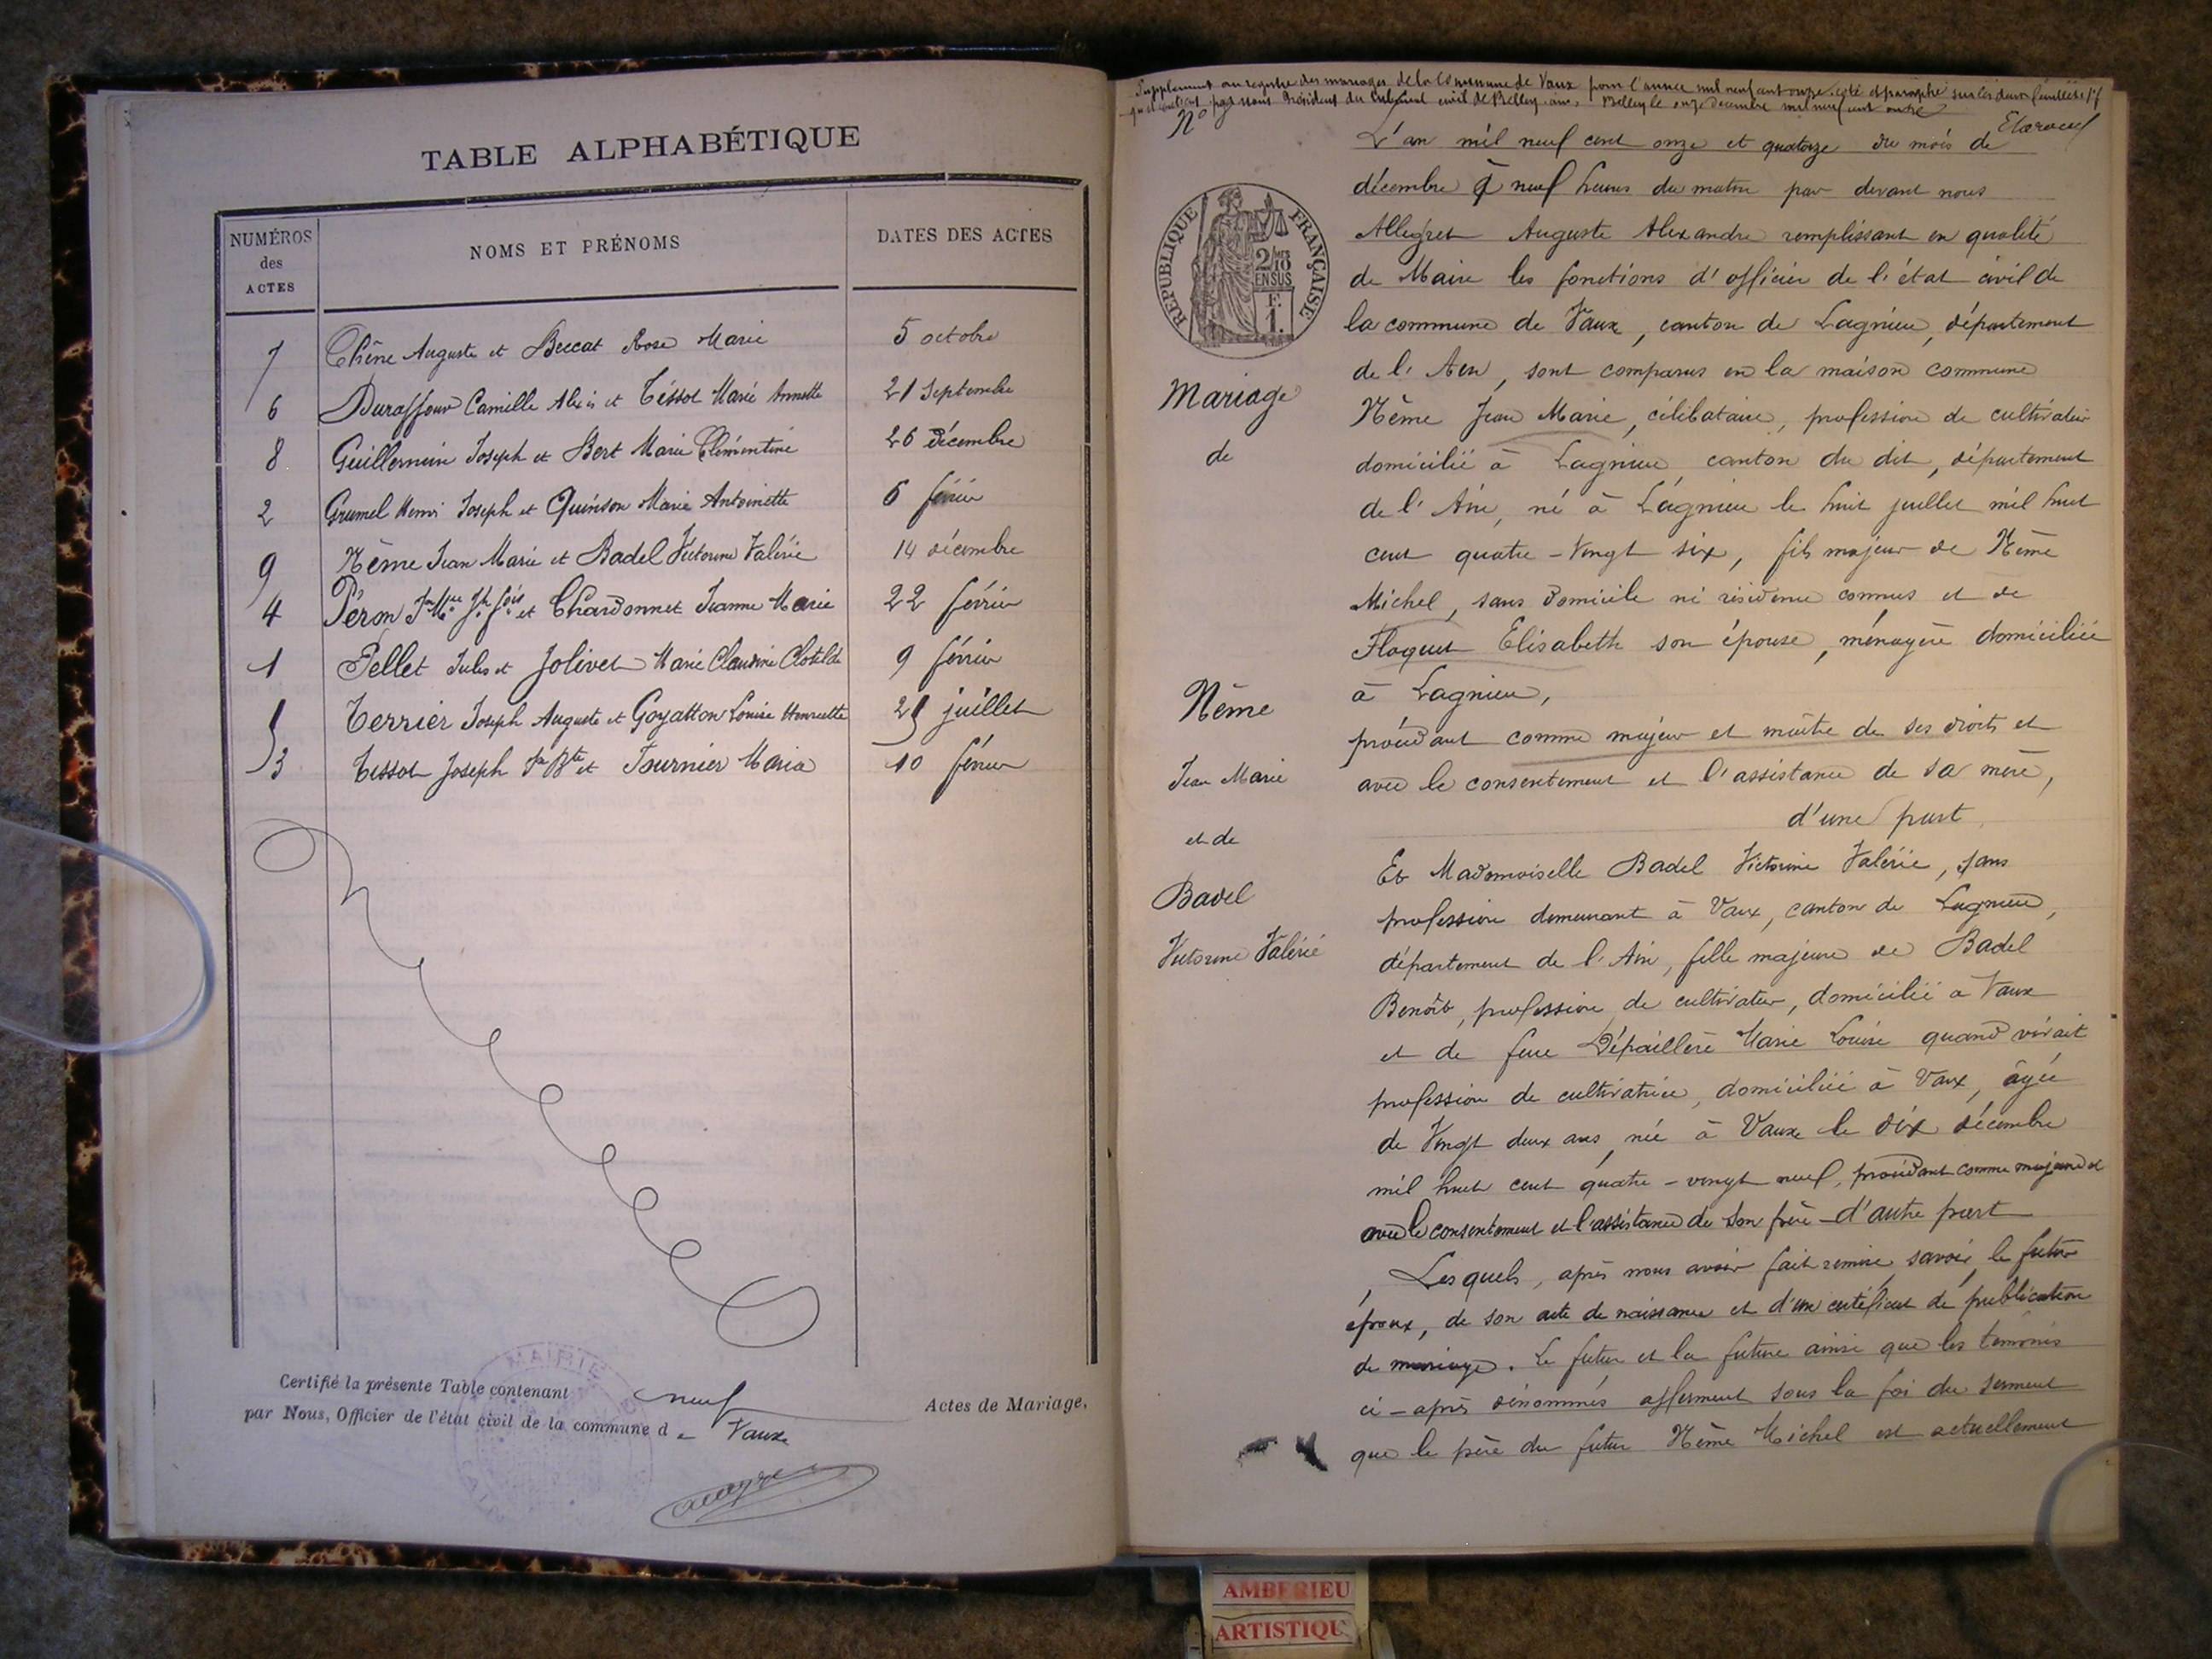 TABLE ALPHABÉTIQUE
NUMÉROS des ACTES
NOMS ET PRÉNOMS
DATES DES ACTES
7 Chêne Auguste et Beccat Rose Marie 5 octobre
6 Duraffour Camille Alexis et Téssot Marie Annette 21 Septembre
8 Guillermin Joseph et Bert Marie Clémentine 26 décembre
2 Grumel Henri Joseph et Quinson Marie Antoinette 6 février
9 Nême Jean Marie et Badel Victorine Valérie 14 décembre
4 Péron et Chardonnet Jeanne Marie 22 février
1 Pellet Jules et Jolivet Marie Claudine Clotilde 9 février
5 Terrier Joseph Auguste et Goyatton Louise Henriette 21 juillet
3 Tissot Joseph Jn Bte et Tournier Maria 10 février
Certifié la présente Table contenant neuf Actes de Mariage,
par Nous, Officier de l'état civil de la commune de Vaux
MAIRIE
Supplement au registre des mariages de la Commune de Vaux pour l'année mil neuf cent onze coté et paraphé sur les deux feuillets
par nous Président du tribunal civil de Belley Belley le onze Décembre mil neuf cent onze
No
RÉPUBLIQUE FRANÇAISE
2/10
EN SUS
F.
1.
Mariage
de
Nême
Jean Marie
et de
Badel
Victorine Valérie
L'an mil neuf cent onze et quatorze du mois de
décembre à neuf heures du matin par devant nous
Allegret Auguste Alexandre remplissant en qualité
de Maire les fonctions d'officier de l'état civil de
la commune de Vaux, canton de Lagnieu, département
de l'Ain, sont comparus en la maison commune
Nême Jean Marie, célibataire, profession de cultivateur
domicilié à Lagnieu canton du dit, département
de l'Ain, né à Lagnieu le huit juillet mil huit
cent quatre-vingt six, fils majeur de Nême
Michel, sans domicile ni résidence connus et de
Floquet Elisabeth son épouse, ménagère domiciliée
à Lagnieu,
procédant comme majeur et maître de ses droits et
avec le consentement et l'assistance de sa mère,
d'une part
Et Mademoiselle Badel Victorine Valérie, sans
profession demeurant à Vaux, canton de Lagnieu,
département de l'Ain, fille majeure de Badel
Benoît, profession de cultivateur, domicilié à Vaux
et de feue Dépaillère Marie Louise quand vivait
profession de cultivatrice, domiciliée à Vaux, âgée
de Vingt deux ans, née à Vaux le dix décembre
mil huit cent quatre-vingt neuf, procédant comme majeure et
avec le consentement et l'assistance de son père d'autre part
Lesquels, après nous avoir fait remise, savoir, le futur
époux, de son acte de naissance et d'un certificat de publication
de mariage. Le futur et la future ainsi que les temoins
ci-après dénommés afferment sous la foi du serment
que le père du futur Nême Michel est actuellement
AMBERIEU
ARTISTIQU